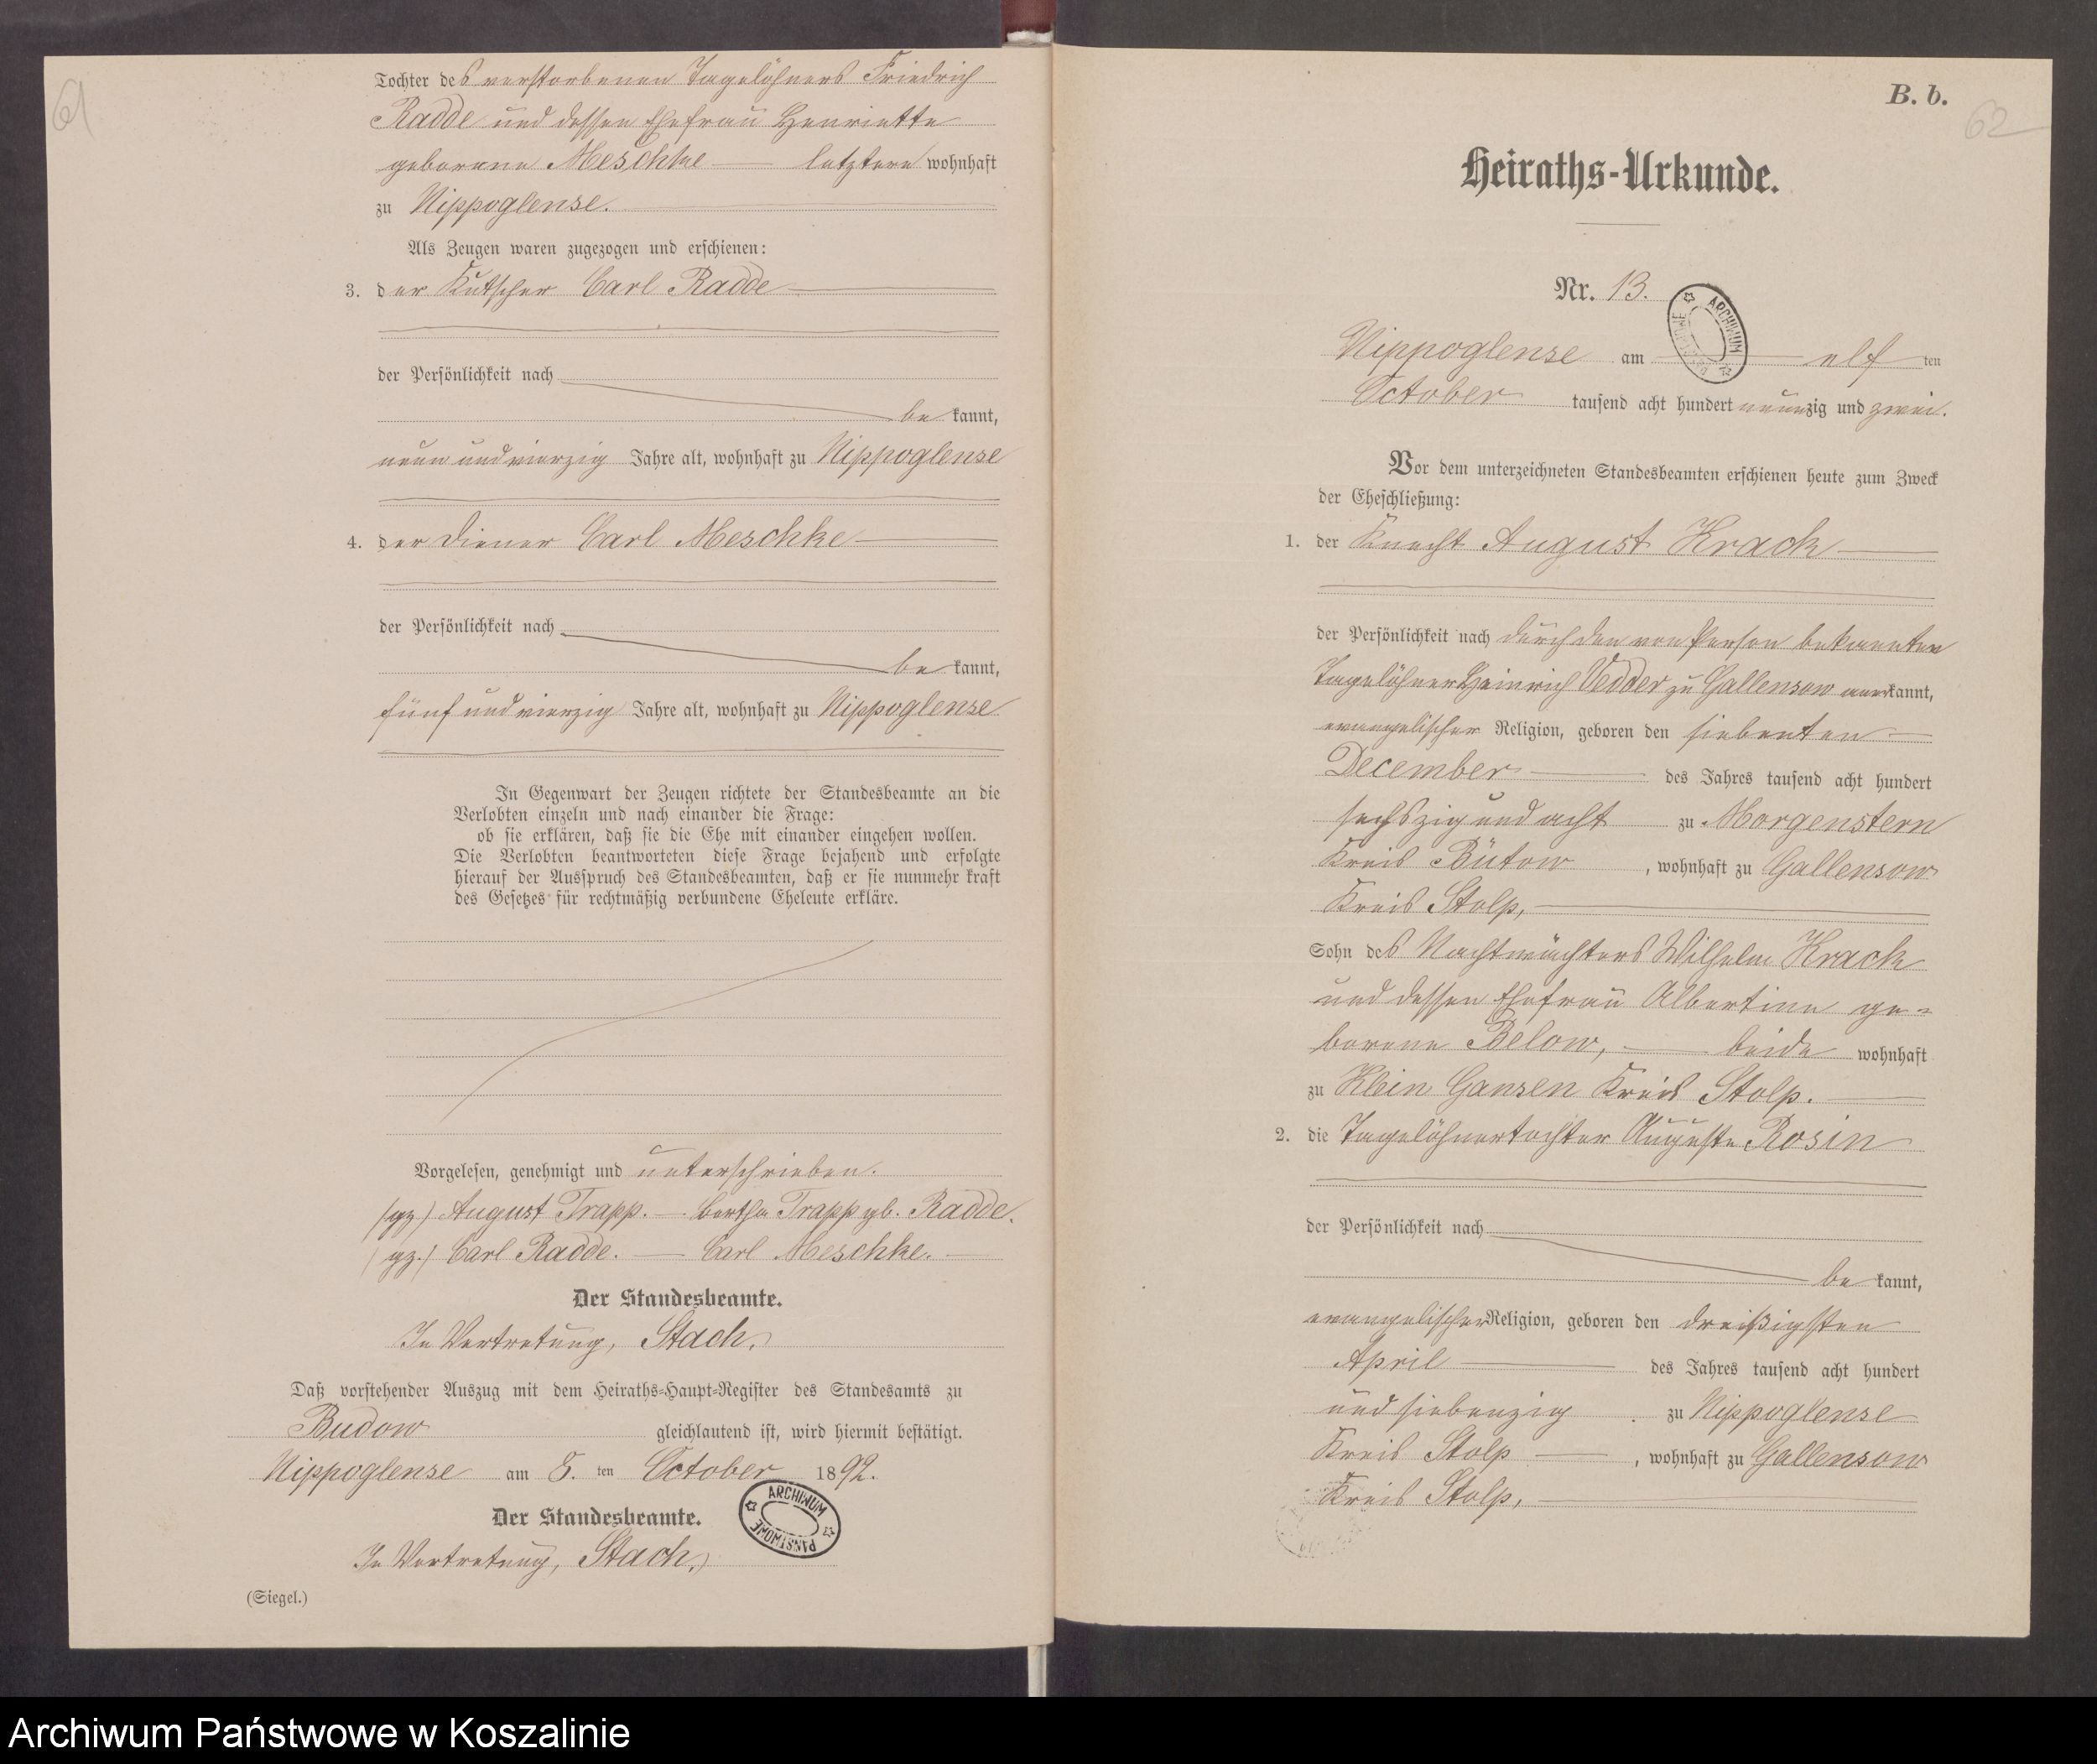 61
Tochter des verstorbenen Tagelöhners Friedrich
Radde und dessen Ehefrau Henriette
geborene Meschke letztere wohnhaft
zu Nippoglense.
Als Zeugen waren zugezogen und erschienen:
3. der Kutscher Carl Radde
der Persönlichkeit nach
be kannt,
neun und vierzig Jahre alt, wohnhaft zu Nippoglense
4. der Diener Carl Meschke
der Persönlichkeit nach
be kannt,
fünf und vierzig Jahre alt, wohnhaft zu Nippoglense
In Gegenwart der Zeugen richtete der Standesbeamte an die
Verlobten einzeln und nach einander die Frage:
ob sie erklären, daß sie die Ehe mit einander eingehen wollen.
Die Verlobten beantworteten diese Frage bejahend und erfolgte
hierauf der Ausspruch des Standesbeamten, daß er sie nunmehr kraft
des Gesetzes für rechtmäßig verbundene Eheleute erkläre.
Vorgelesen, genehmigt und unterschrieben.
(gz) August Trapp. – Bertha Trapp gb. Radde.
(gz.) Carl Radde. – Carl Meschke.
Der Standesbeamte.
In Vertretung, Stach.
Daß vorstehender Auszug mit dem Heiraths-Haupt-Register des Standesamts zu
Budow gleichlautend ist, wird hiermit bestätigt.
Nippoglense am 8. ten October 1892.
Der Standesbeamte.
In Vertretung, Stach.
(Siegel.)
ARCHIWUM PAŃSTWOWE
B. b.
62
Heiraths-Urkunde.
Nr. 13.
ARCHIWUM PAŃSTWOWE
Nippoglense am elf ten
October tausend acht hundert neunzig und zwei.
Vor dem unterzeichneten Standesbeamten erschienen heute zum Zweck
der Eheschließung:
1. der Knecht August Krack
der Persönlichkeit nach durch den von Person bekannten
Tagelöhner Heinrich Vedder zu Gallensow anerkannt,
evangelischer Religion, geboren den siebenten
December des Jahres tausend acht hundert
sechszig und acht zu Morgenstern
Kreis Bütow, wohnhaft zu Gallensow
Kreis Stolp,
Sohn des Nachtwächters Wilhelm Krack
und dessen Ehefrau Albertine ge-
borene Below, beide wohnhaft
zu Klein Gansen Kreis Stolp.
2. die Tagelöhnertochter Auguste Rosin
der Persönlichkeit nach
be kannt,
evangelischer Religion, geboren den dreißigsten
April des Jahres tausend acht hundert
und siebenzig zu Nippoglense
Kreis Stolp, wohnhaft zu Gallensow
Kreis Stolp,
Archiwum Państwowe w Koszalinie